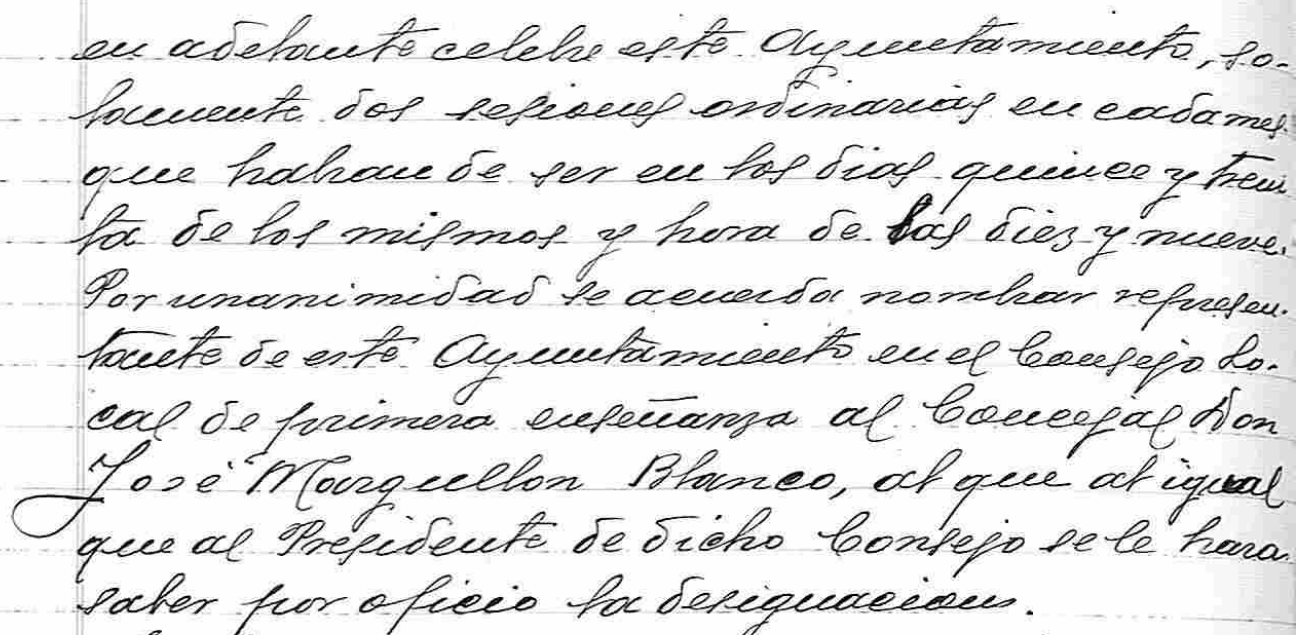 en adelante celebre este Ayuntamiento, so-
lamente dos sesiones ordinarias en cada mes
que habran de ser en los dias quince y trein
ta de los mismos y hora de las diez y nueve.
Por unanimidad se acuerda nombrar represen-
tante de este Ayuntamiento en el Consejo Lo-
cal de primera enseñanza al Concejal Don
José Marquellon Blanco, al que al igual
que al Presidente de dicho Consejo se le hara
saber por oficio la designacion.